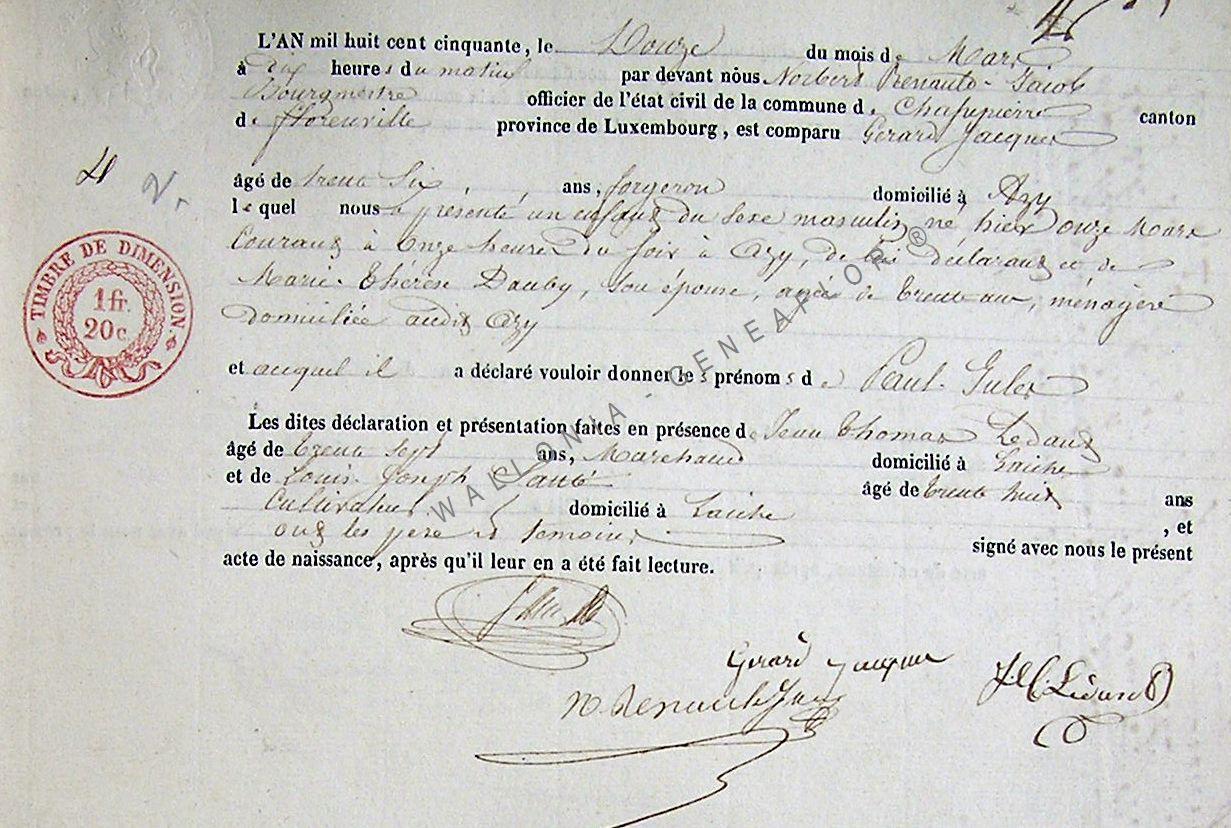 L'AN mil huit cent cinquante, le Douze du mois de Mars
à dix heures du matin par devant nous Norbert Renauld-Jacob
Bourgmestre officier de l'état civil de la commune de Chassepierre canton
de florenville province de Luxembourg, est comparu Gérard Jacques
4 2.
âgé de trente Six, ans, forgeron domicilié à Azy
lequel nous a présenté un enfant du sexe masculin né hier onze Mars
Courant à Onze heures du soir à Azy, de lui déclarant et de
Marie-Thérèse Dauby, son épouse, agée de trente ans, ménagère
domiciliée audit Azy
et auquel il a déclaré vouloir donner les prénoms de Paul-Jules
Les dites déclaration et présentation faites en présence de Jean Thomas Ledant
âgé de trente sept ans, Marchand domicilié à Laiche
et de Louis Joseph âgé de trente huit ans
Cultivateur domicilié à Laiche
ont les père et témoins, et signé avec nous le présent
acte de naissance, après qu'il leur en a été fait lecture.
Gérard Jacques
N. Renauld Jacob
TIMBRE DE DIMENSION.
1 fr.
20 c.
WALLONIA - GENEAFLOR ®